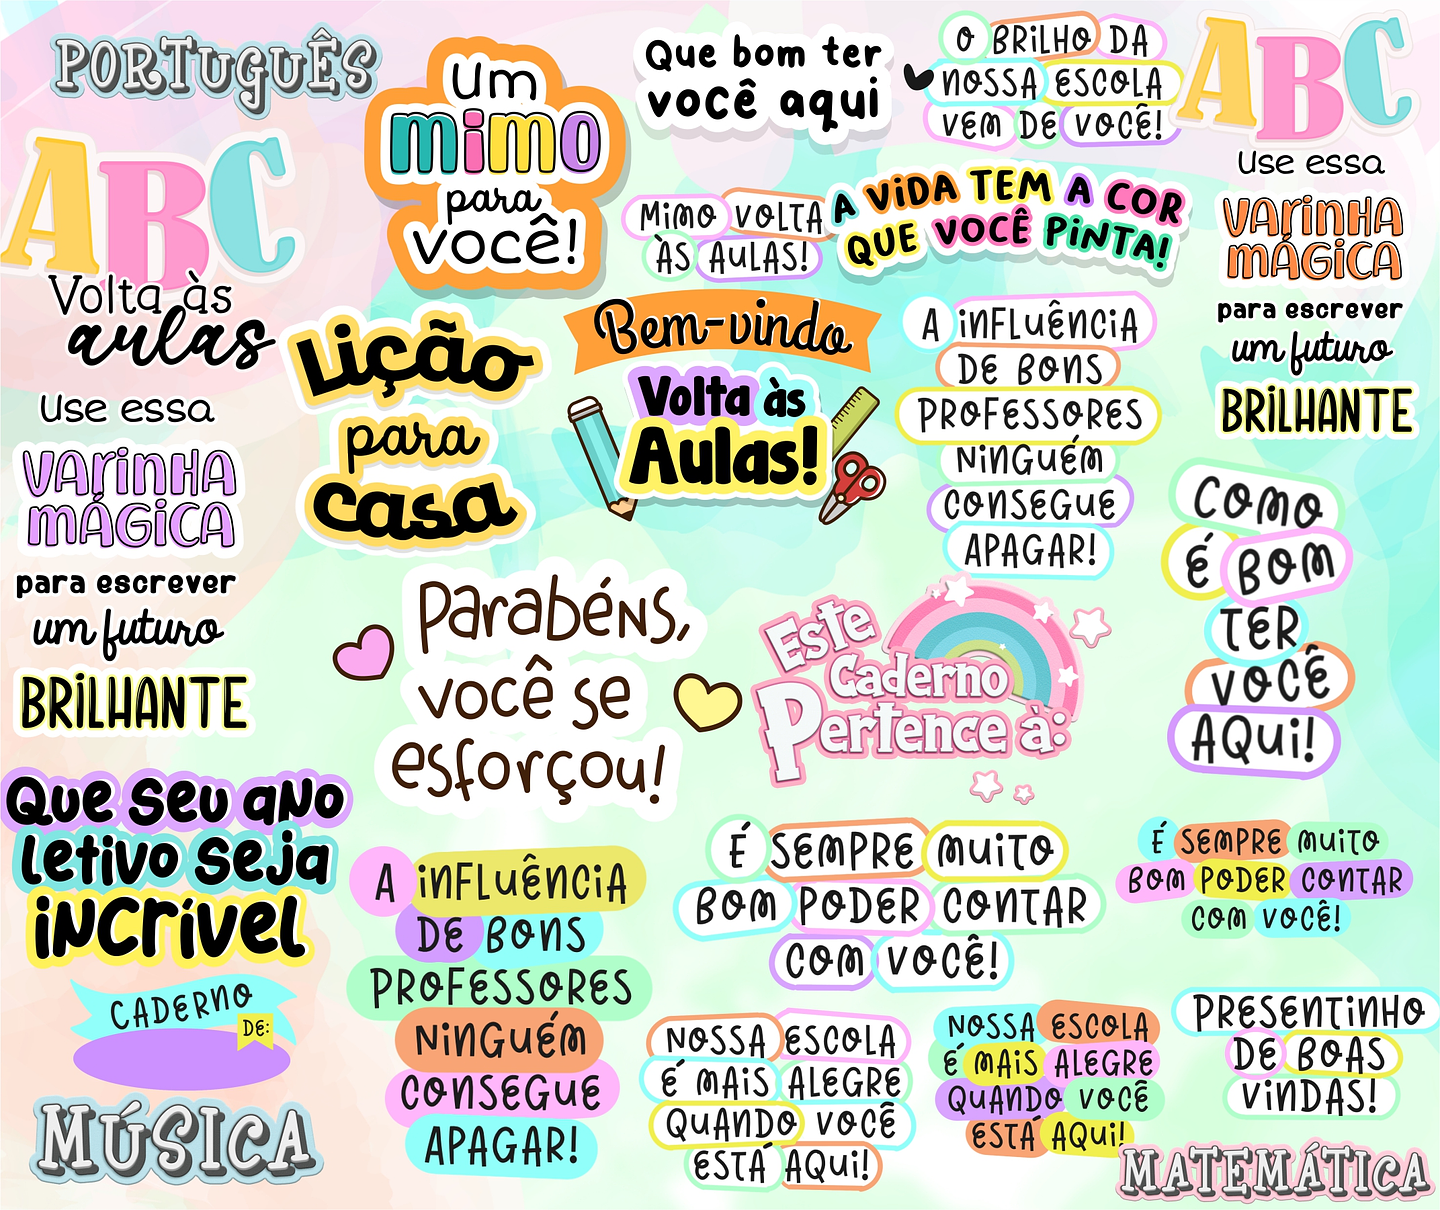 PORTUGUÊS
ABC
Volta às
aulas
Use essa
varinha
mágica
para escrever
um futuro
BRILHANTE
Que seu ano
letivo seja
incrível
CADERNO
DE:
MÚSICA
Um
mimo
para
você!
Lição
para
casa
Que bom ter
você aqui
O BRILHO DA
NOSSA ESCOLA
VEM DE VOCÊ!
MIMO VOLTA
ÀS AULAS!
A VIDA TEM A COR
QUE VOCÊ PINTA!
Bem-vindo
Volta às
Aulas!
A INFLUÊNCIA
DE BONS
PROFESSORES
NINGUÉM
CONSEGUE
APAGAR!
ABC
Use essa
varinha
mágica
para escrever
um futuro
BRILHANTE
COMO
É BOM
TER
VOCÊ
AQUI!
Parabéns,
você se
esforçou!
Este
Caderno
Pertence à:
A INFLUÊNCIA
DE BONS
PROFESSORES
NINGUÉM
CONSEGUE
APAGAR!
É SEMPRE MUITO
BOM PODER CONTAR
COM VOCÊ!
É SEMPRE MUITO
BOM PODER CONTAR
COM VOCÊ!
NOSSA ESCOLA
É MAIS ALEGRE
QUANDO VOCÊ
ESTÁ AQUI!
NOSSA ESCOLA
É MAIS ALEGRE
QUANDO VOCÊ
ESTÁ AQUI!
PRESENTINHO
DE BOAS
VINDAS!
MATEMÁTICA